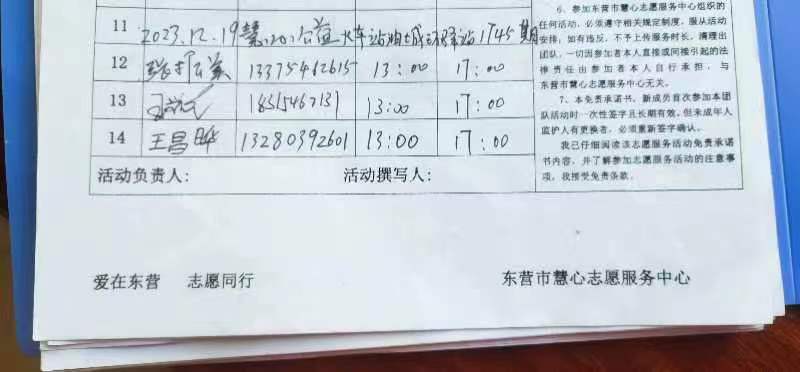 11 2023.12.19慧心公益火车站 1745期
12 13375462615 13:00 17:00
13 18515467131 13:00 17:00
14 王昌晔 13280392601 13:00 17:00
活动负责人: 活动撰写人:
6、参加东营市慧心志愿服务中心组织的
任何活动，必须遵守相关规定制度，服从活动
安排，如有违反，不予上传服务时长，清理出
团队，一切因参加者本人直接或间接引起的法
律责任由参加者本人自行承担，与
东营市慧心志愿服务中心无关。
7、本免责承诺书，新成员首次参加本团
队活动时一次性签字且长期有效，但未成年人
监护人有更换者，必须重新签字确认。
我已仔细阅读该志愿服务活动免责承诺
书内容，并了解参加志愿服务活动的注意事
项，我接受免责条款。
爱在东营 志愿同行
东营市慧心志愿服务中心